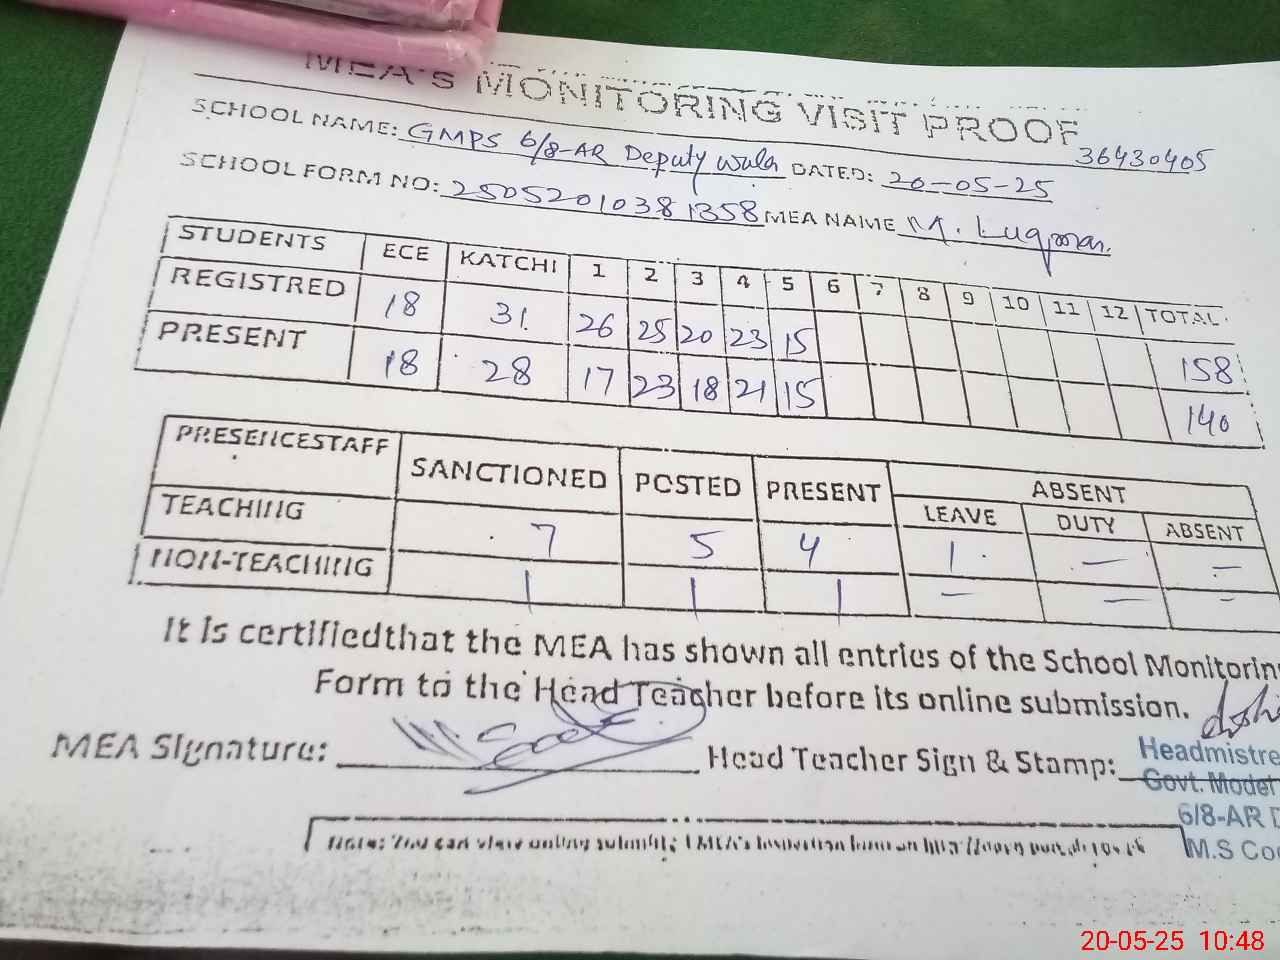 MEA'S MONITORING VISIT PROOF
36430405
SCHOOL NAME: GMPS 6/8-AR Deputy wala DATED: 20-05-25
SCHOOL FORM NO: 25052010381358 MEA NAME M. Luqman.
STUDENTS ECE KATCHI 1 2 3 4 5 6 7 8 9 10 11 12 TOTAL
REGISTRED 18 31 26 25 20 23 15 158
PRESENT 18 28 17 23 18 21 15 140
PRESENCESTAFF SANCTIONED POSTED PRESENT ABSENT
LEAVE DUTY ABSENT
TEACHING 7 5 4 1 — —
NON-TEACHING 1 1 1 — — —
It is certifiedthat the MEA has shown all entries of the School Monitorin
Form to the Head Teacher before its online submission.
MEA Signature: Head Teacher Sign & Stamp:
Headmistre
Govt. Model
6/8-AR D
M.S Coo
Note: You can view online submitted MEA's Inspection form on
20-05-25 10:48